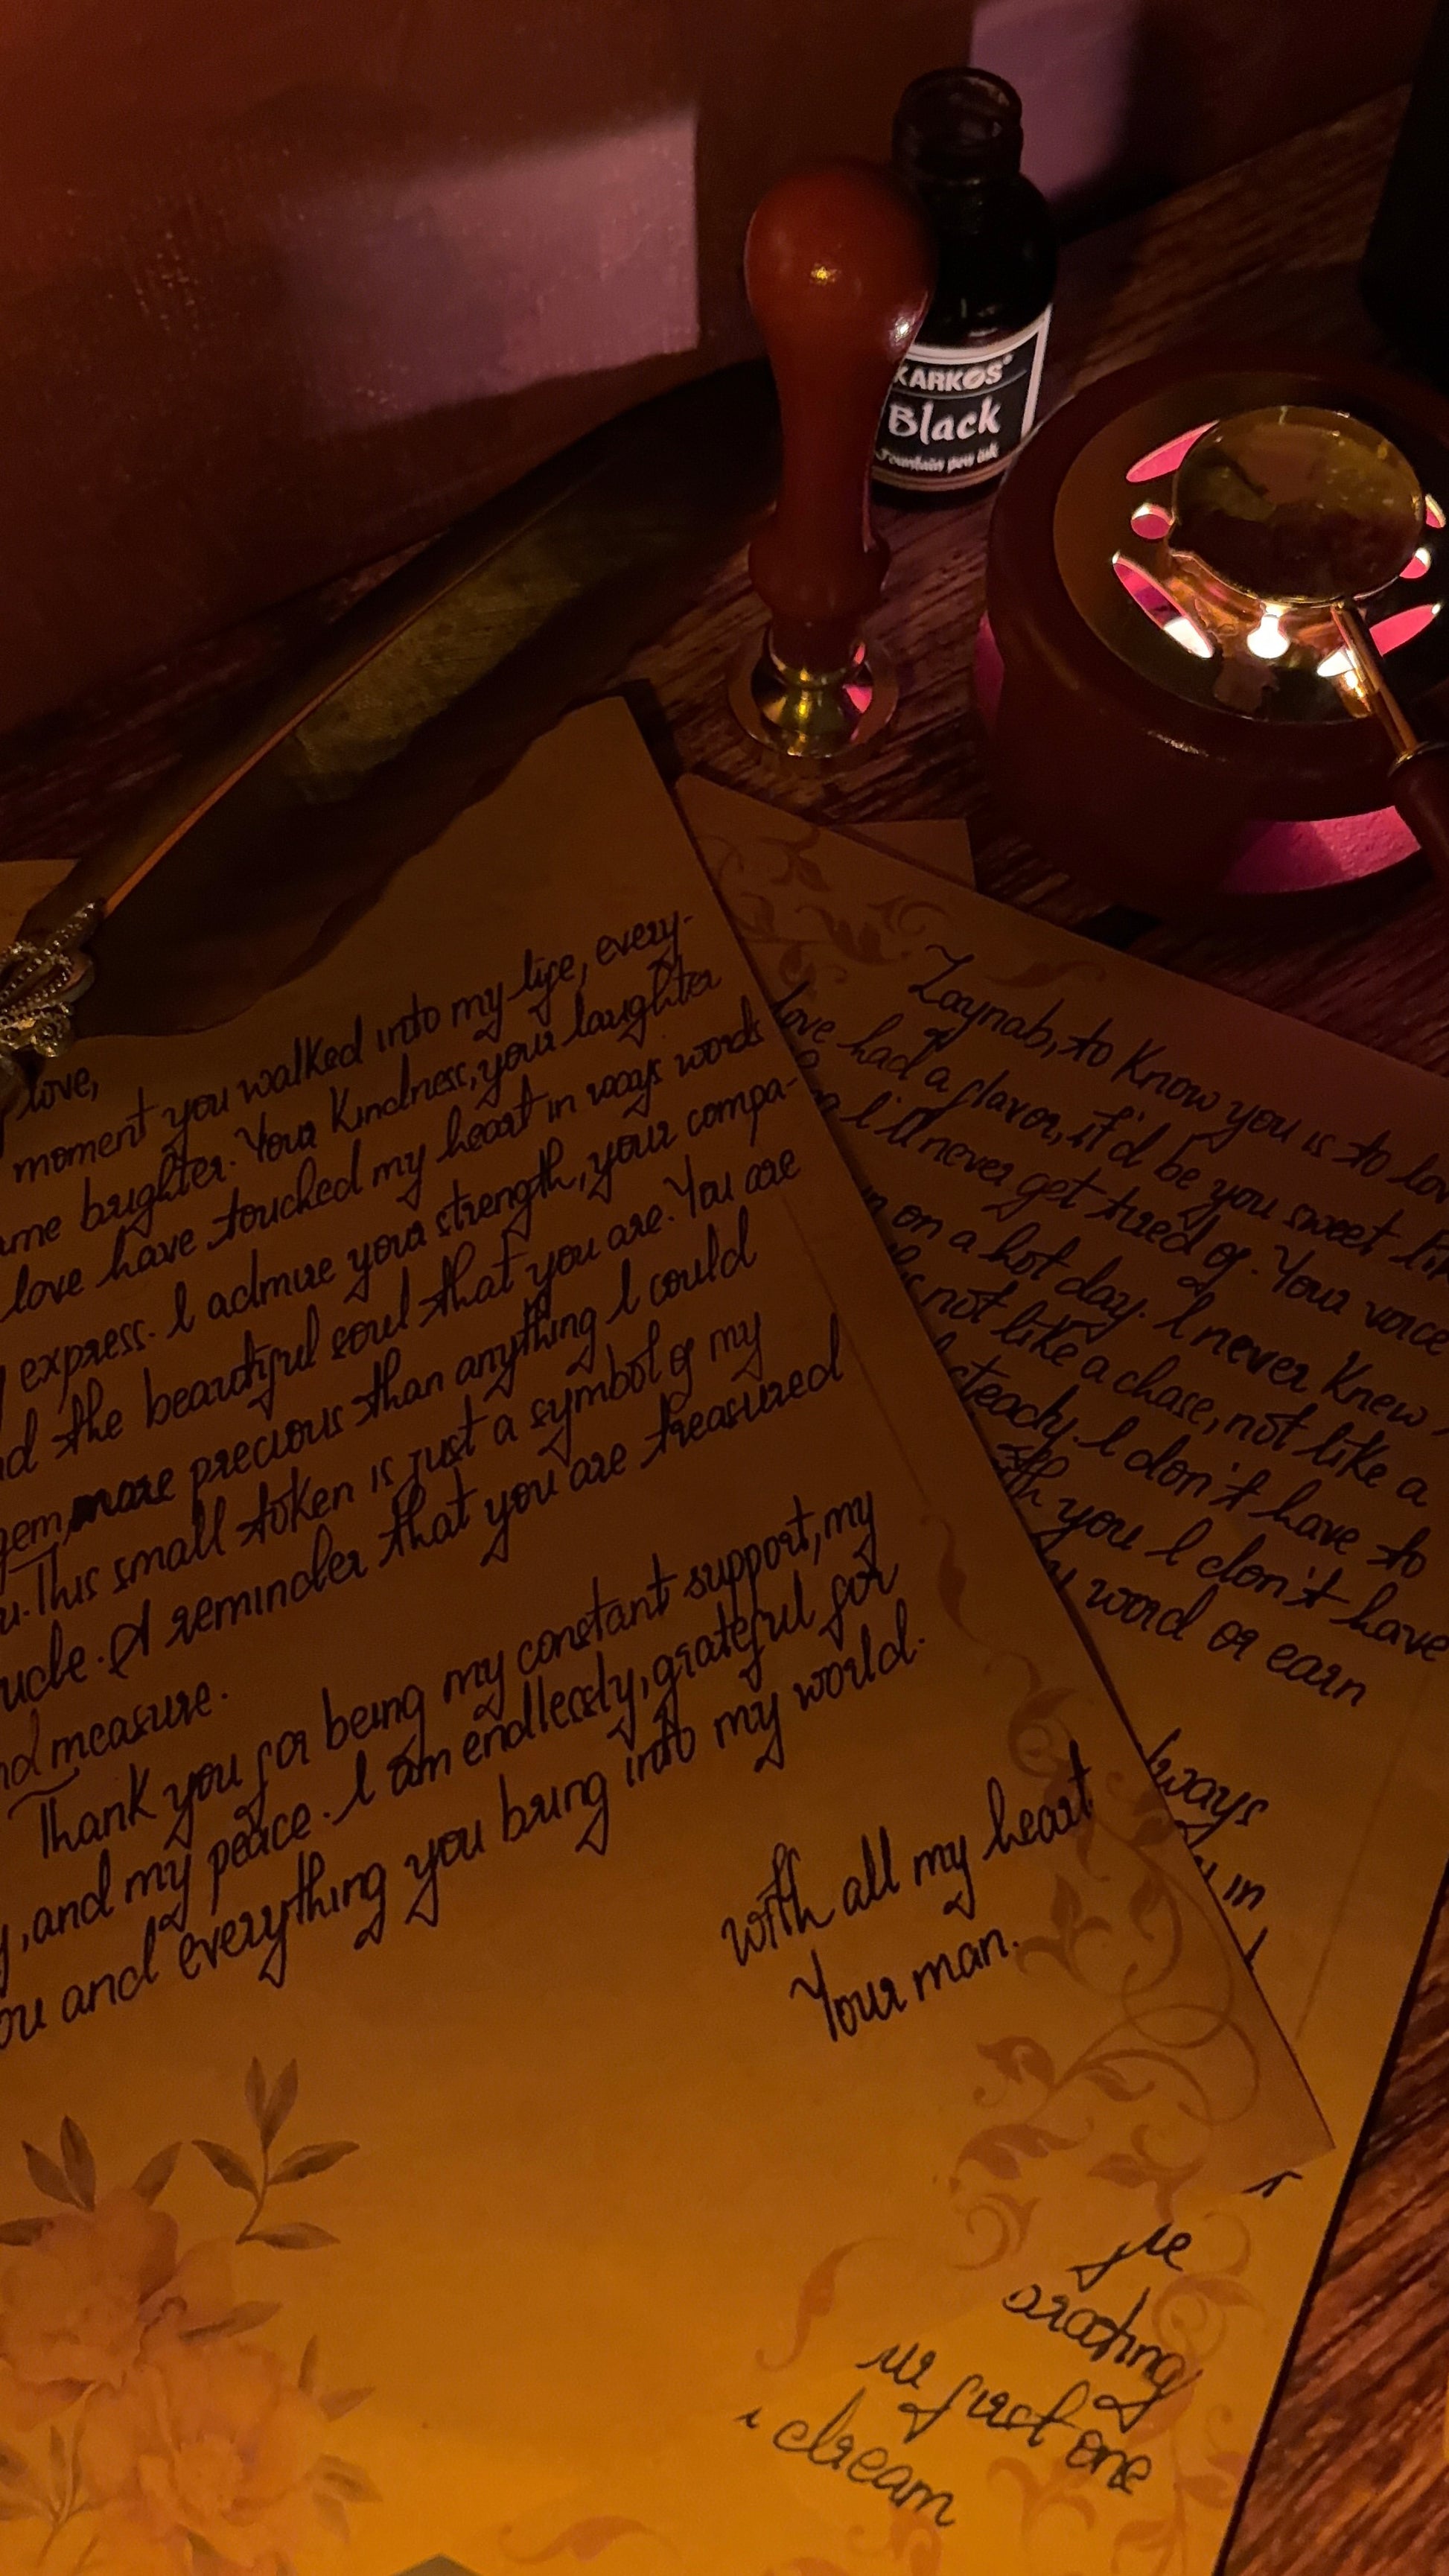 KARKOS
Black
Fountain pen ink
love,
moment you walked into my life, every-
me brighter. Your kindness, your laughter
love have touched my heart in ways words
express. I admire your strength, your compa-
the beautiful soul that you are. You are
gem, more precious than anything I could
This small token is just a symbol of my
A reminder that you are treasured
measure.
Thank you for being my constant support, my
, and my peace. I am endlessly, grateful for
and everything you bring into my world.
with all my heart
Your man.
Zaynab, to know you is to
love had a flavor, it'd be you sweet
I'll never get tired of. Your voice
on a hot day. I never knew
not like a chase, not like a
steady. I don't have to
you I don't have
word or earn
ways
in
first one
dream